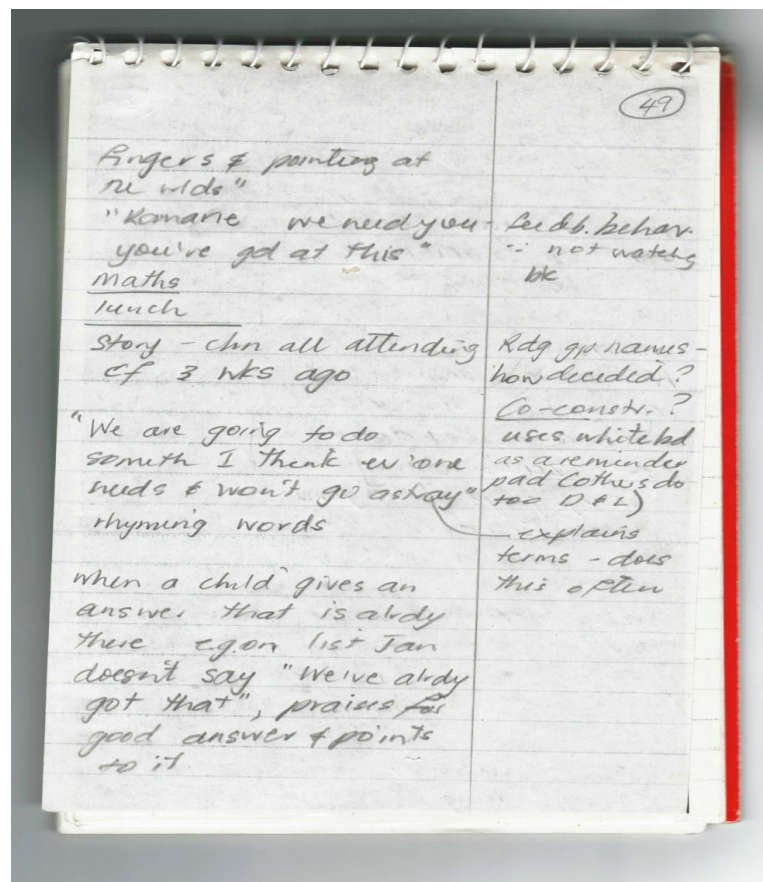 49
fingers & pointing at
the wlds"
"Romane we need you -
you're gd at this"
Maths
lunch
Story - chn all attending
cf 3 wks ago
"We are going to do
someth I think ev'one
needs & won't go astray"
rhyming words
when a child gives an
answer that is alrdy
there e.g. on list Jan
doesn't say "We've alrdy
got that", praises for
good answer & points
to it
feedb. behav.
∵ not watchg
bk
Rdg gp names -
how decided?
Co-constr.?
uses whitebd
as a reminder
pad (others do
too D & L)
explains
terms - does
this often